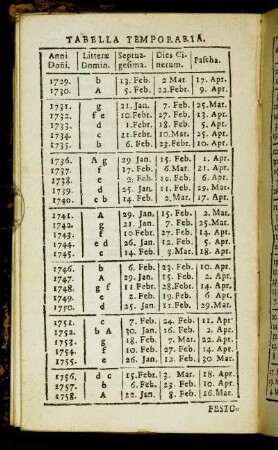 TABELLA TEMPORARIA.
Anni Litteræ Septua- Dies Ci- Pascha.
Dñi. Domin. gesima. nerum.
1729. b 13. Feb. 2 Mar. 17. Apr.
1730. A 5. Feb. 22.Febr. 9. Apr.
1731. g 21. Jan. 7. Feb. 25.Mar.
1732. f e 10.Febr. 27. Feb. 13. Apr.
1733. d 1.Febr. 18. Feb. 5. Apr.
1734. c 21.Febr. 10.Mar. 25. Apr.
1735. b 6. Feb. 23.Feb. 10. Apr.
1736. A g 29. Jan. 15. Feb. 1. Apr.
1737. f 17. Feb. 6.Mar. 21. Apr.
1738. e 2. Feb. 19. Feb. 6. Apr.
1739. d 25. Jan. 11. Feb. 29. Mar.
1740. c b 14. Feb. 2. Mar. 17. Apr.
1741. A 29. Jan. 15. Feb. 2. Mar.
1742. g 21. Jan. 7. Feb. 25. Mar.
1743. f 10.Febr. 27. Feb. 14. Apr.
1744. e d 26. Jan. 12. Feb. 5. Apr.
1745. c 14. Feb. 3. Mar. 18. Apr.
1746. b 6. Feb. 23. Feb. 10. Apr.
1747. A 29. Jan. 15. Feb. 2. Apr.
1748. g f 11. Febr. 28.Febr. 14. Apr.
1749. e 2. Feb. 19. Feb. 6. Apr.
1750. d 25. Jan. 11. Feb. 29. Mar.
1751. c 7. Feb. 24. Feb. 11. Apr.
1752. b A 30. Jan. 16. Feb. 2. Apr.
1753. g 18. Feb. 7. Mar. 22. Apr.
1754. f 10. Feb. 27. Feb. 14. Apr.
1755. e 26. Jan. 12. Feb. 30. Mar.
1756. d c 15.Febr. 3. Mar. 18. Apr.
1757. b 6. Feb. 23. Feb. 10. Apr.
1758. A 22. Jan. 8. Feb. 26.Mar.
FESTU-